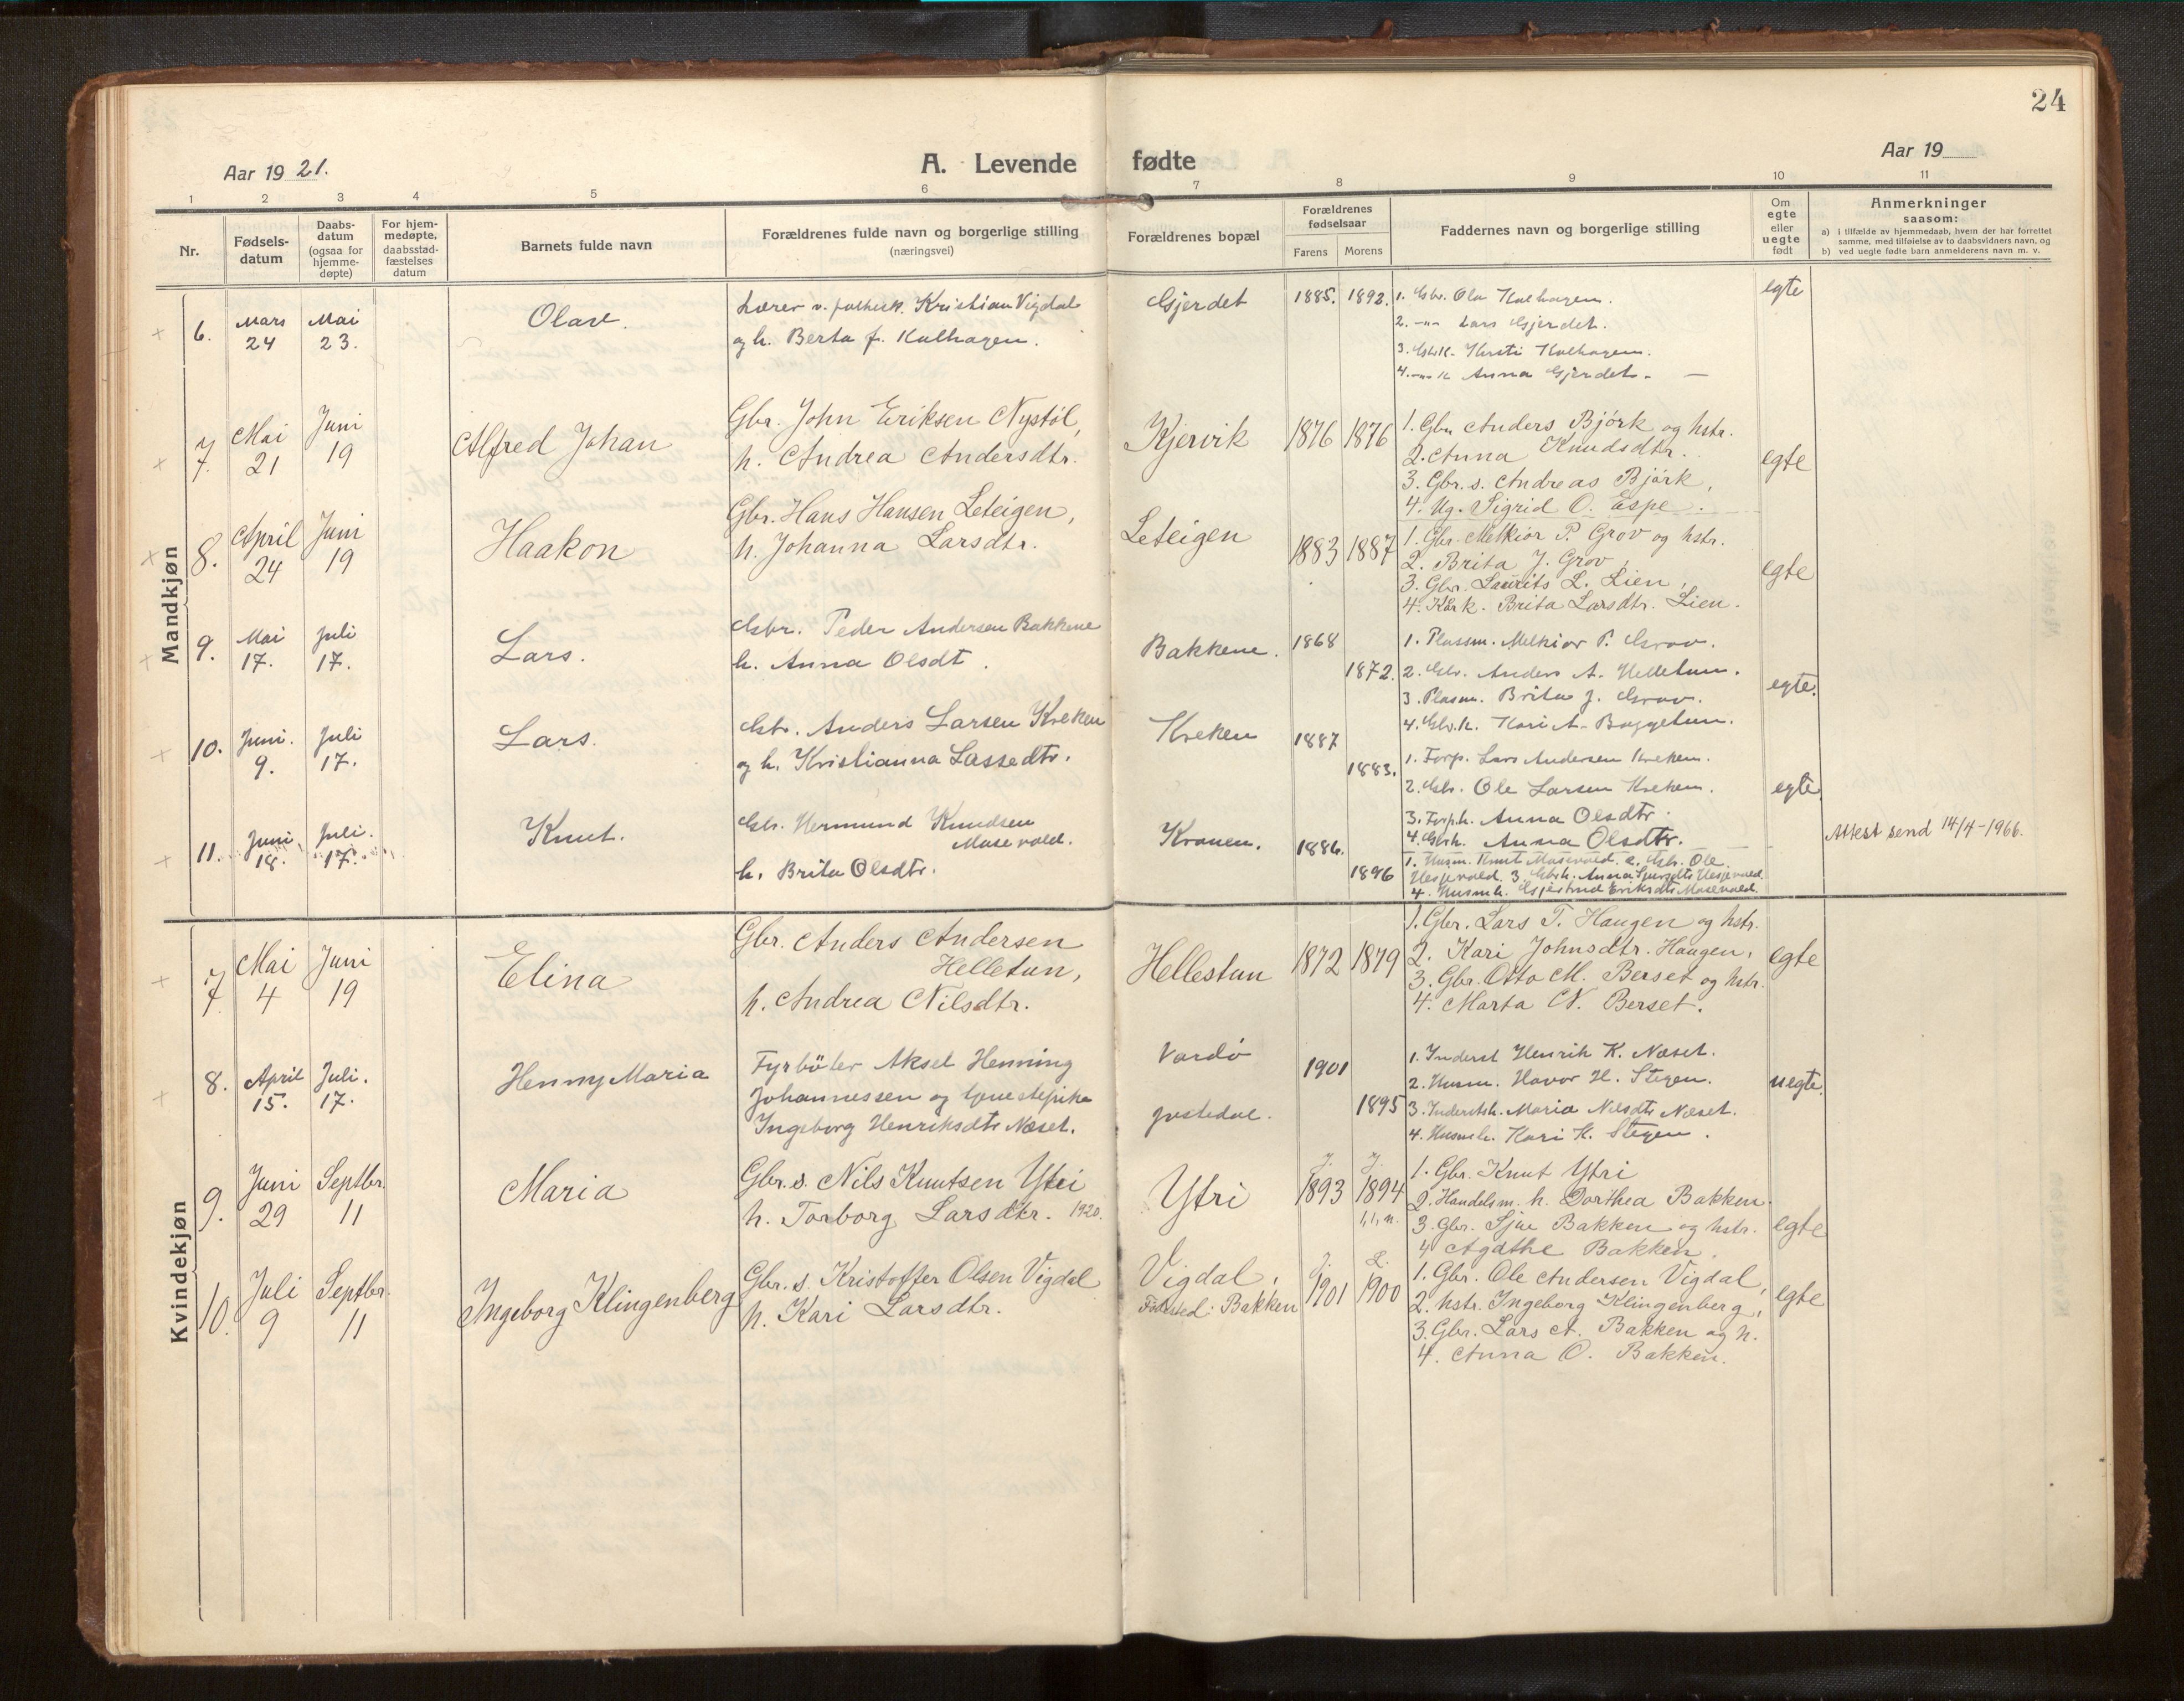 24
Aar 19 21.
A. Levende fødte
Aar 19
1 2 3 4 5 6 7 8 9 10 11
Nr.
Fødsels-
datum
Daabs-
datum
(ogsaa for
hjemme-
døpte)
For hjem-
medøpte,
daabsstad-
fæstelses
datum
Barnets fulde navn
Forældrenes fulde navn og borgerlige stilling
(næringsvei)
Forældrenes bopæl
Forældrenes
fødselsaar
Farens Morens
Faddernes navn og borgerlige stilling
Om
egte
eller
uegte
født
Anmerkninger
saasom:
a) i tilfælde av hjemmedaab, hvem der har forrettet
samme, med tilføielse av to daabsvidners navn, og
b) ved uegte fødte barn anmelderens navn m. v.
Mandkjøn
6.
Mars
24
Mai
23.
Olav.
Lærer v. folkesk. Kristian Vigdal
og h. Berta f. Kalhagen.
Gjerdet
1885. 1892.
1. Gbr. Ola Kalhagen.
2. -"- Lars Gjerdet.
3. Gbr.k. Kirsti Kalhagen.
4. -"- k Anna Gjerdet. -
egte
7.
Mai
21
Juni
19
Alfred Johan
Gbr. John Eriksen Nystöl,
h. Andrea Andersdtr.
Kjervik
1876 1876
1. Gbr. Anders Björk og hstr.
2. Anna Knudsdtr.
3. Gbr. s. Andreas Björk,
4. Ug. Sigrid O. Espe.
egte
8.
April
24
Juni
19
Haakon
Gbr. Hans Hansen Leteigen,
h. Johanna Larsdtr.
Leteigen
1883 1887
1. Gbr. Melkior P. Grov og hstr.
2. Brita J. Grov,
3. Gbr. Laurits L. Lien,
4. Kår k. Brita Larsdtr. Lien.
egte
9.
Mai
17.
Juli
17.
Lars.
Gbr. Peder Andersen Bakkene
h. Anna Olsdt.
Bakkene.
1868
1872.
1. Plassm. Melkior P. Grov.
2. Gbr. Anders A. Helletun.
3. Plasm. Brita J. Grov.
4. Gbr.k. Kari A. Buggetun.
egte.
10.
Juni.
9.
Juli
17.
Lars.
Gbr. Anders Larsen Kreken
og h. Kristianna Lassedtr.
Kreken
1887
1883.
1. Forp. Lars Andersen Kreken.
2. Gbr. Ole Larsen Kreken.
3. Forp.h. Anna Olsdtr.
4. Gbr.h. Anna Olsdtr.
egte.
11.
Juni
18.
Juli.
17.
Knut.
Gbr. Hermund Knudsen
Masevold.
h. Brita Olsdtr.
Kronen.
1886.
1896
1. Husm. Knut Masevold. 2. Gbr. Ole
Hesjevold. 3. Gbr.h. Anna Sjursdtr Hesjevold.
4. Husm.h. Gjertrud Eriksdtr Masevold.
Attest send 14/4-1966.
Kvindekjøn
7
Mai
4
Juni
19
Elina
Gbr. Anders Andersen
Helletun,
h. Andrea Nilsdtr.
Hellestun
1872 1879
1. Gbr. Lars T. Haugen og hstr.
2. Kari Johnsdtr. Haugen,
3. Gbr. Otto M. Berset og hstr.
4. Marta N. Berset.
egte
8.
April
15.
Juli.
17.
Henny Maria
Fyrböter Aksel Henning
Johannessen og tjenestepike
Ingeborg Henriksdtr Næset.
Vardö
Jostedal.
1901
1895
1. Inderst Henrik K. Næset.
2. Husm. Havor H. Stegen.
3. Inderstk. Maria Nilsdtr Næset.
4. Husm.k. Kari K. Stegen.
uegte.
9.
Juni
29
Septbr.
11
Maria
Gbr. s. Nils Knutsen Ytri
h. Torborg Larsdtr. 1920.
Ytri
J. J.
1893 1894
1. Gbr. Knut Ytri
2. Handelsm. h. Dorthea Bakken.
3. Gbr. Sjur Bakken og hstr.
4 Agathe Bakken.
egte
10.
Juli
9
Septbr.
11
Ingeborg Klingenberg
Gbr. s. Kristoffer Olsen Vigdal
h. Kari Larsdtr.
Vigdal,
Födested: Bakken
J. L.
1901 1900
1. Gbr. Ole Andersen Vigdal,
2. hstr. Ingeborg Klingenberg,
3. Gbr. Lars A. Bakken og h.
4. Anna O. Bakken.
egte